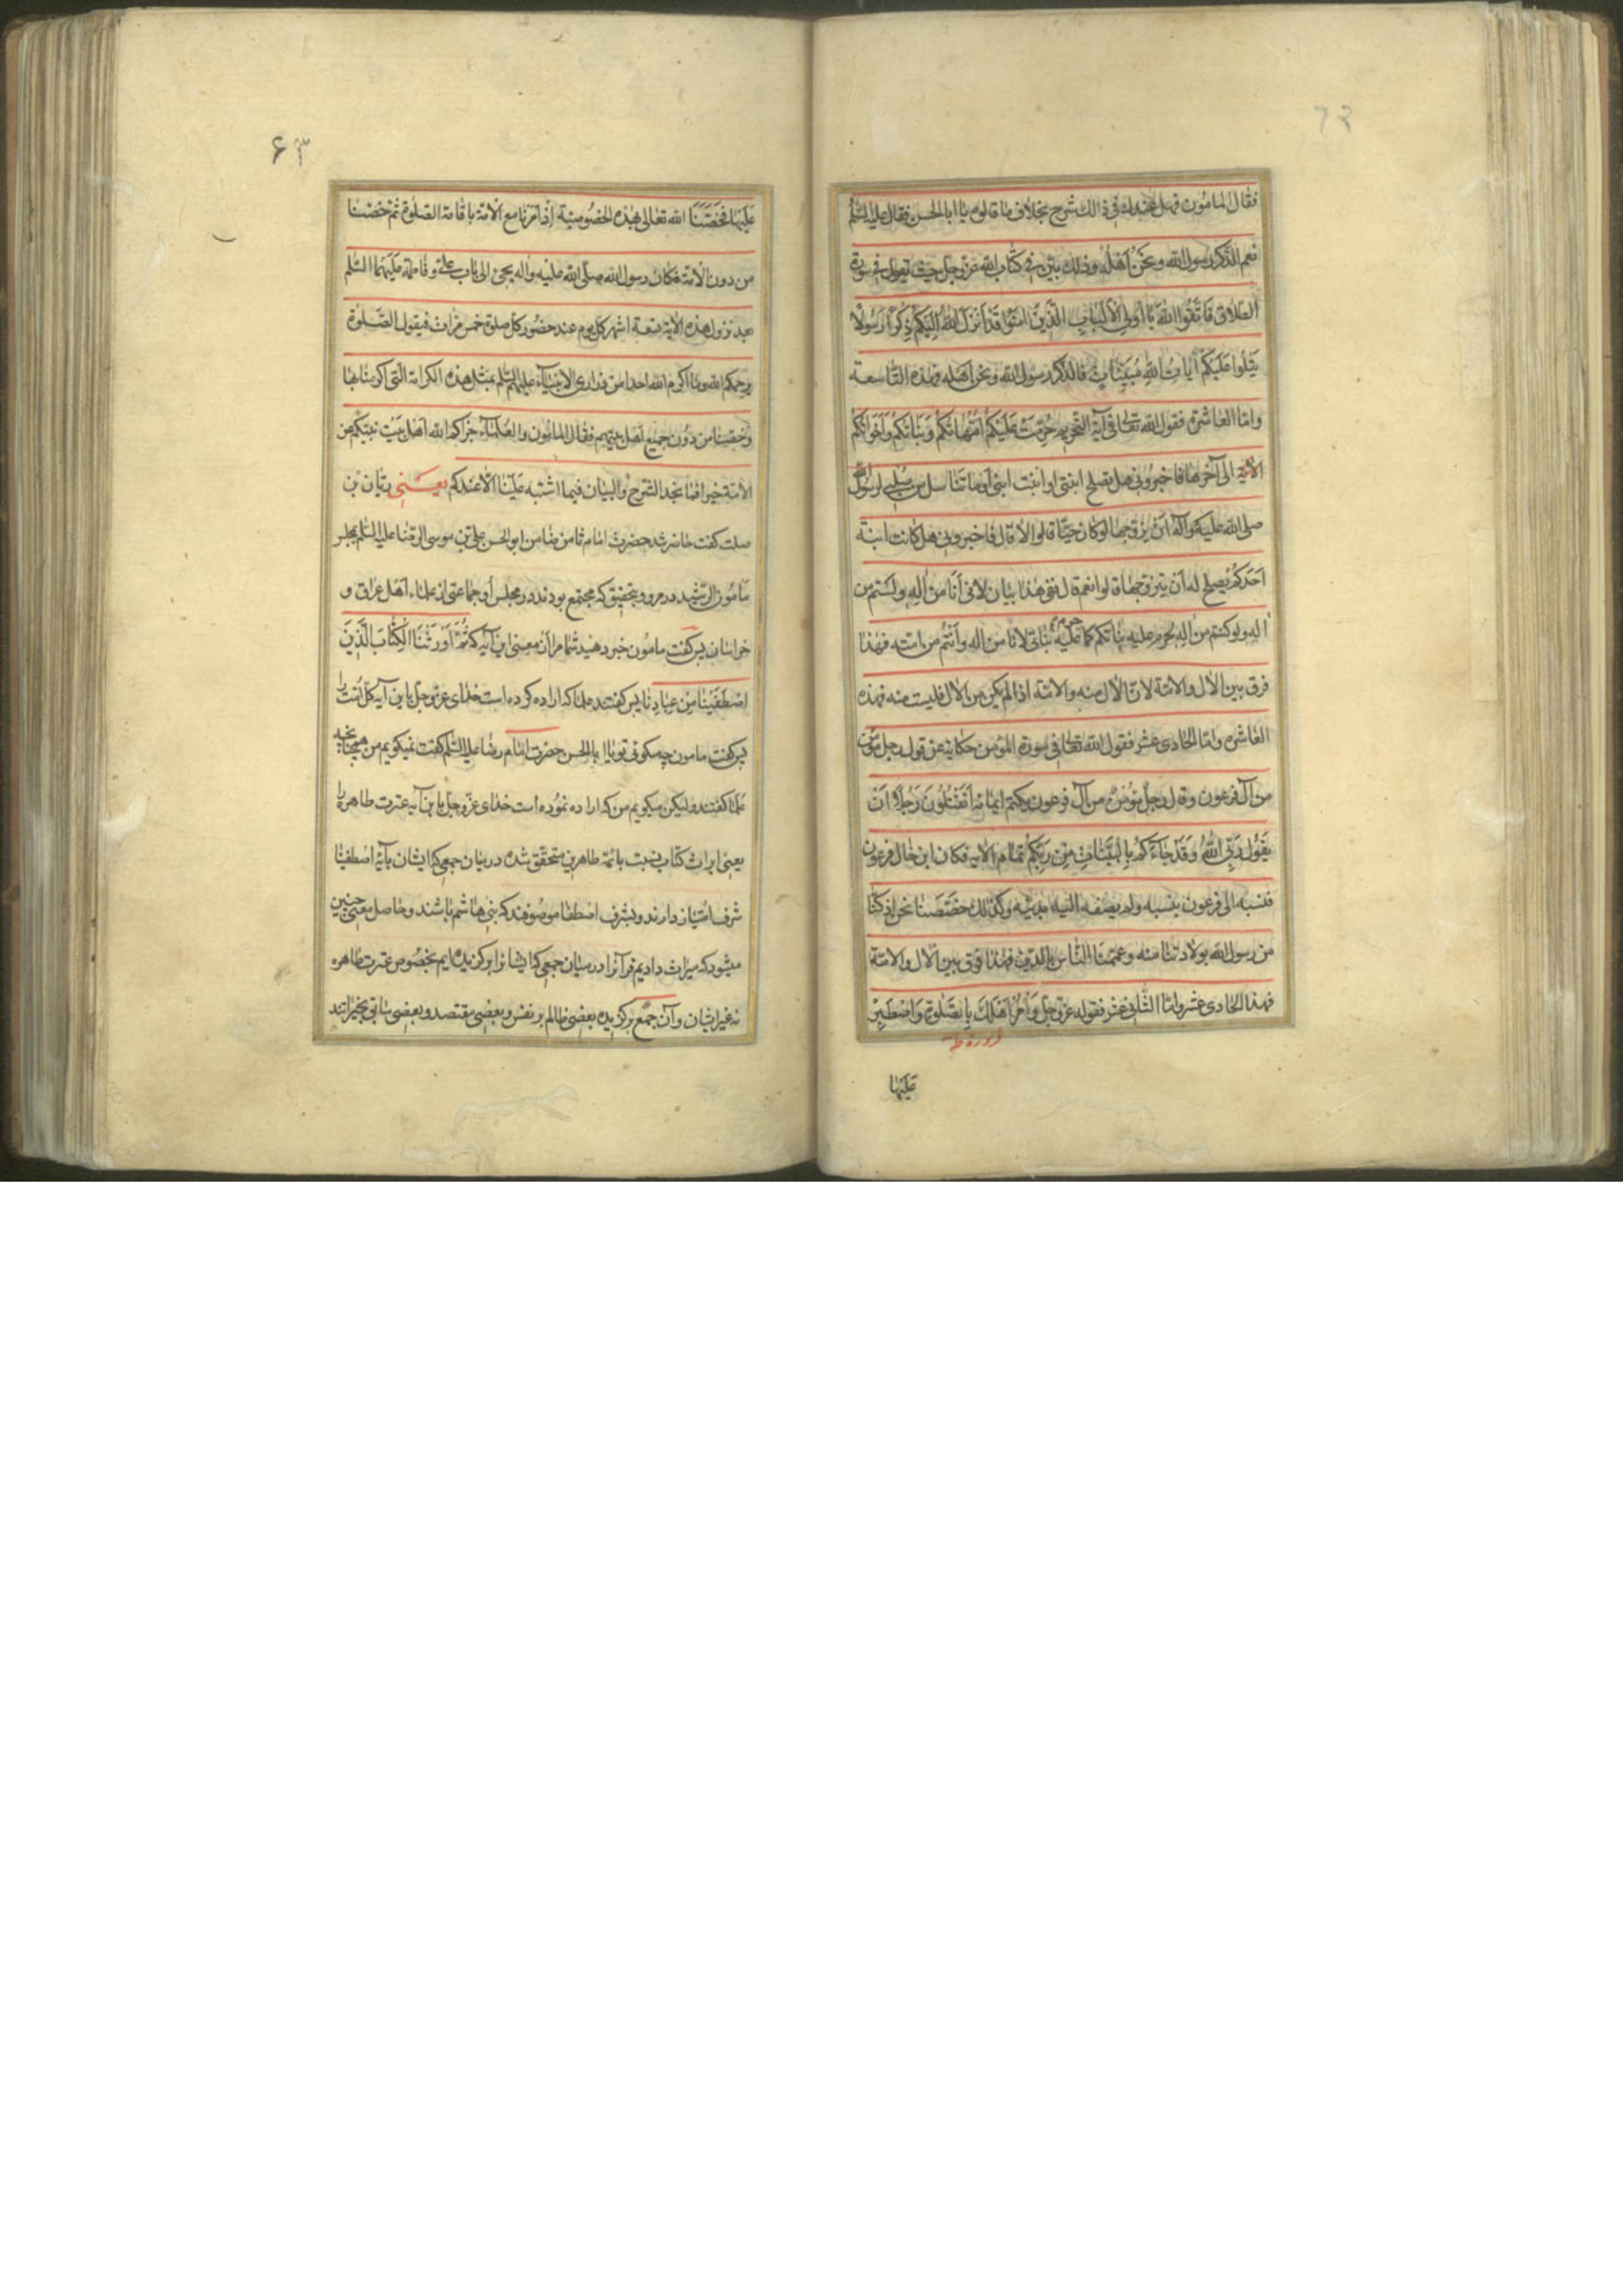 فقال المامون فهل عندك فى ذالك شرح بخلاف ما قالوه يا ابا الحسن فقال عليه السلم
نعم الذكر رسول الله و نحن اهله و ذلك بيّن فى كتاب الله عزّ و جل حيث يقول فى سورة
الطلاق فَاتَّقُوا اللهَ يَا اُولِى الْاَلْبَابِ الَّذِينَ امَنُوا قَدْ اَنْزَلَ اللهُ اِلَيْكُمْ ذِكْرًا رَسُولًا
يَتْلُوا عَلَيْكُمْ ايَاتِ اللهِ مُبَيِّنَاتٍ فالذكر رسول الله و نحن اهله فهذه التاسعة
و امّا العاشرة فقول الله تعالى فى آية التحريم حُرِّمَتْ عَلَيْكُمْ اُمَّهَاتُكُمْ وَبَنَاتُكُمْ وَاَخَوَاتُكُمْ
الاية الى آخرها فاخبرونى هل تصلح ابنتى او ابنت ابنى او ما تناسل من صلبى لرسول الله
صلى الله عليه و آله اَن يتزوجها لو كان حيًّا قالوا لا قال فاخبرونى هل كانت ابنة
اَحَدكُم يصلح له اَن يتزوّجها قالوا نعم قال ففى هذا بيان لانى اَنَا من اٰله و لستم من
اٰله و لو كنتم من اٰله لحرم عليه بناتكم كما حرم عليه بناتى لانا من اله و اَنتم من امته فهذا
فرق بين الاٰل و الامّة لانّ الاٰل منه و الامّة اذا لم يكن من الاٰل فليست منه فهذه
العاشره و امّا الحادى عشر فقول الله تعالى فى سورة المؤمن حكاية عن قول رجل مؤمن
من آل فرعون و قال رجل مُؤمِنٌ من آل فرعون يكتم ايمانه اَتَقْتُلُونَ رَجُلًا اَنْ
يَقُولَ رَبِّىَ اللهُ وَ قَدْ جَاءَكُمْ بِالْبَيِّنَاتِ مِنْ رَبِّكُمْ تمام الايه فكان ابن خال فرعون
فنسبه الى فرعون بنسبه و لم يضفه اليه بدينه و كذلك خصّصنا نحن اذ كنّا
من رسول الله بولادتنا منه و عمّمنا النّاس بالدّين فهذا فرق بين الاٰل و الامّة
فهذا الحادى عشر و امّا الثّانى عشر فقوله عزّ و جلّ وَ اْمُرْ اَهْلَكَ بِالصَّلوةِ وَاصْطَبِرْ
عَلَيْهَا
۶۳
عَلَيْهَا فخصّنا الله تعالى بهذه الخصُوصيّة اِذ اَمَرَنا مع الاُمّة باقامة الصّلوة ثمّ خصّنا
من دون الاُمّة فكان رسول الله صلّى الله عليه و اٰله يجىء الى باب علىّ و فاطمة عَلَيهِمَا السّلم
بعد نزول هذه الاية تسعة اشهر كلّ يوم عند حضُور كلّ صلوة خمس مرّات فيقول الصّلوة
يرحمكم الله و ما اكرم الله احدا من ذرارى الانبياء عليهم السّلم بمثل هذه الكرامة الّتى اكرمنا بها
و خصّنا من دُون جميع اَهل بيتهم فقال المامُون و العُلماء جزاكم الله اَهل بَيت نبيّكم عن
الامّة خيرا فما نجد الشرح و البيان فيما اشتبه عَلَينا الّا عندكم يعنى ريّان بن
صلت كفت حاضر شد حضرت امام ثامن ضامن ابو الحسن على بن موسى الرضا عليه السّلم بمجلس
مامُون الرّشيد در مرو و بتحقيق كه مجتمع بودند در مجلس او جماعتى از علماء اَهل عراق و
خراسان پس كفت مامون خبر دهيد شما مرا از معنى اين آيه كه ثُمَّ اَوْرَثْنَا الْكِتَابَ الَّذِينَ
اصْطَفَيْنَا مِنْ عِبَادِنَا پس كفتند علما كه اراده كرده است خداى عزّ و جلّ باين آيه كلّ امّت را
پس كفت مامون چه ميكوئى تو يا ابا الحسن حضرت امام رضا عليه السّلم كفت نميكويم من همچنانچه
علما كفتند وليكن ميكويم من كه اراده نموُده است خداى عزّ و جلّ باين آيه عترت طاهره را
يعنى ايراث كتاب نسبت بائمّهٔ طاهرين متحقّق شده درميان جمعى كه ايشان بآيهٔ اصطفينا
شرف امتياز دارند و بشرف اصطفا موصُوفند كه بنى هاشم باشند و حاصل معنى چنين
ميشود كه ميراث داديم قرآنرا درميان جمعى كه ايشانرا بركزيده ايم بخصُوص عترت طاهره
نه غير ايشان و آن جمع بركزيده بعضى ظالم بر نفس و بعضى مقتصد و بعضى سابق بخيراتند